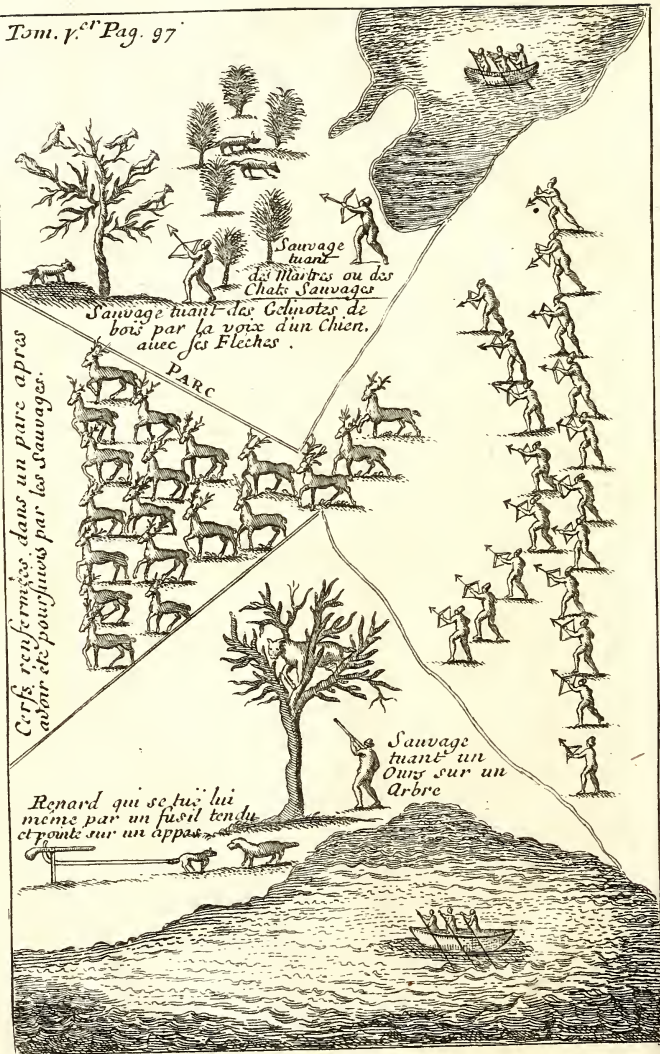 Tom. 1.er Pag. 97
Sauvage
tuant
des Martres ou des
Chats Sauvages
Sauvage tuant des Gelinotes de
bois par la voix d'un Chien,
avec ses Fleches .
PARC
Cerfs renfermées dans un parc apres
avoir été poursuivis par les Sauvages.
Sauvage
tuant un
Ours sur un
Arbre
Renard qui se tuë lui
méme par un fusil tendu
et pointé sur un appas